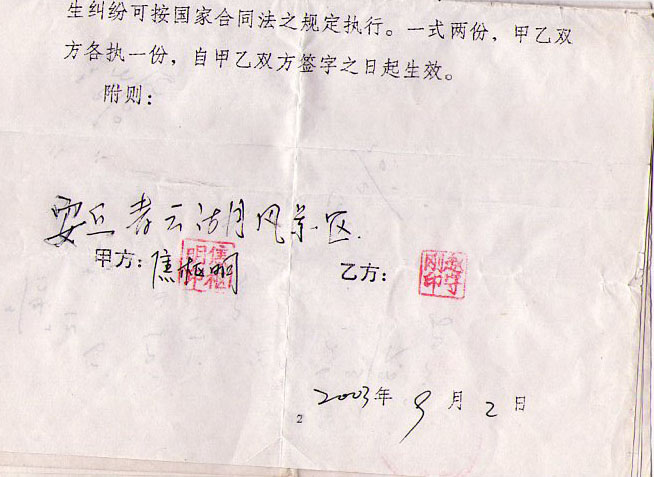 生纠纷可按国家合同法之规定执行。一式两份，甲乙双
方各执一份，自甲乙双方签字之日起生效。
附则：
安丘青云湖风景区
甲方：焦 明
乙方：
刚印
2003年9月2日
2